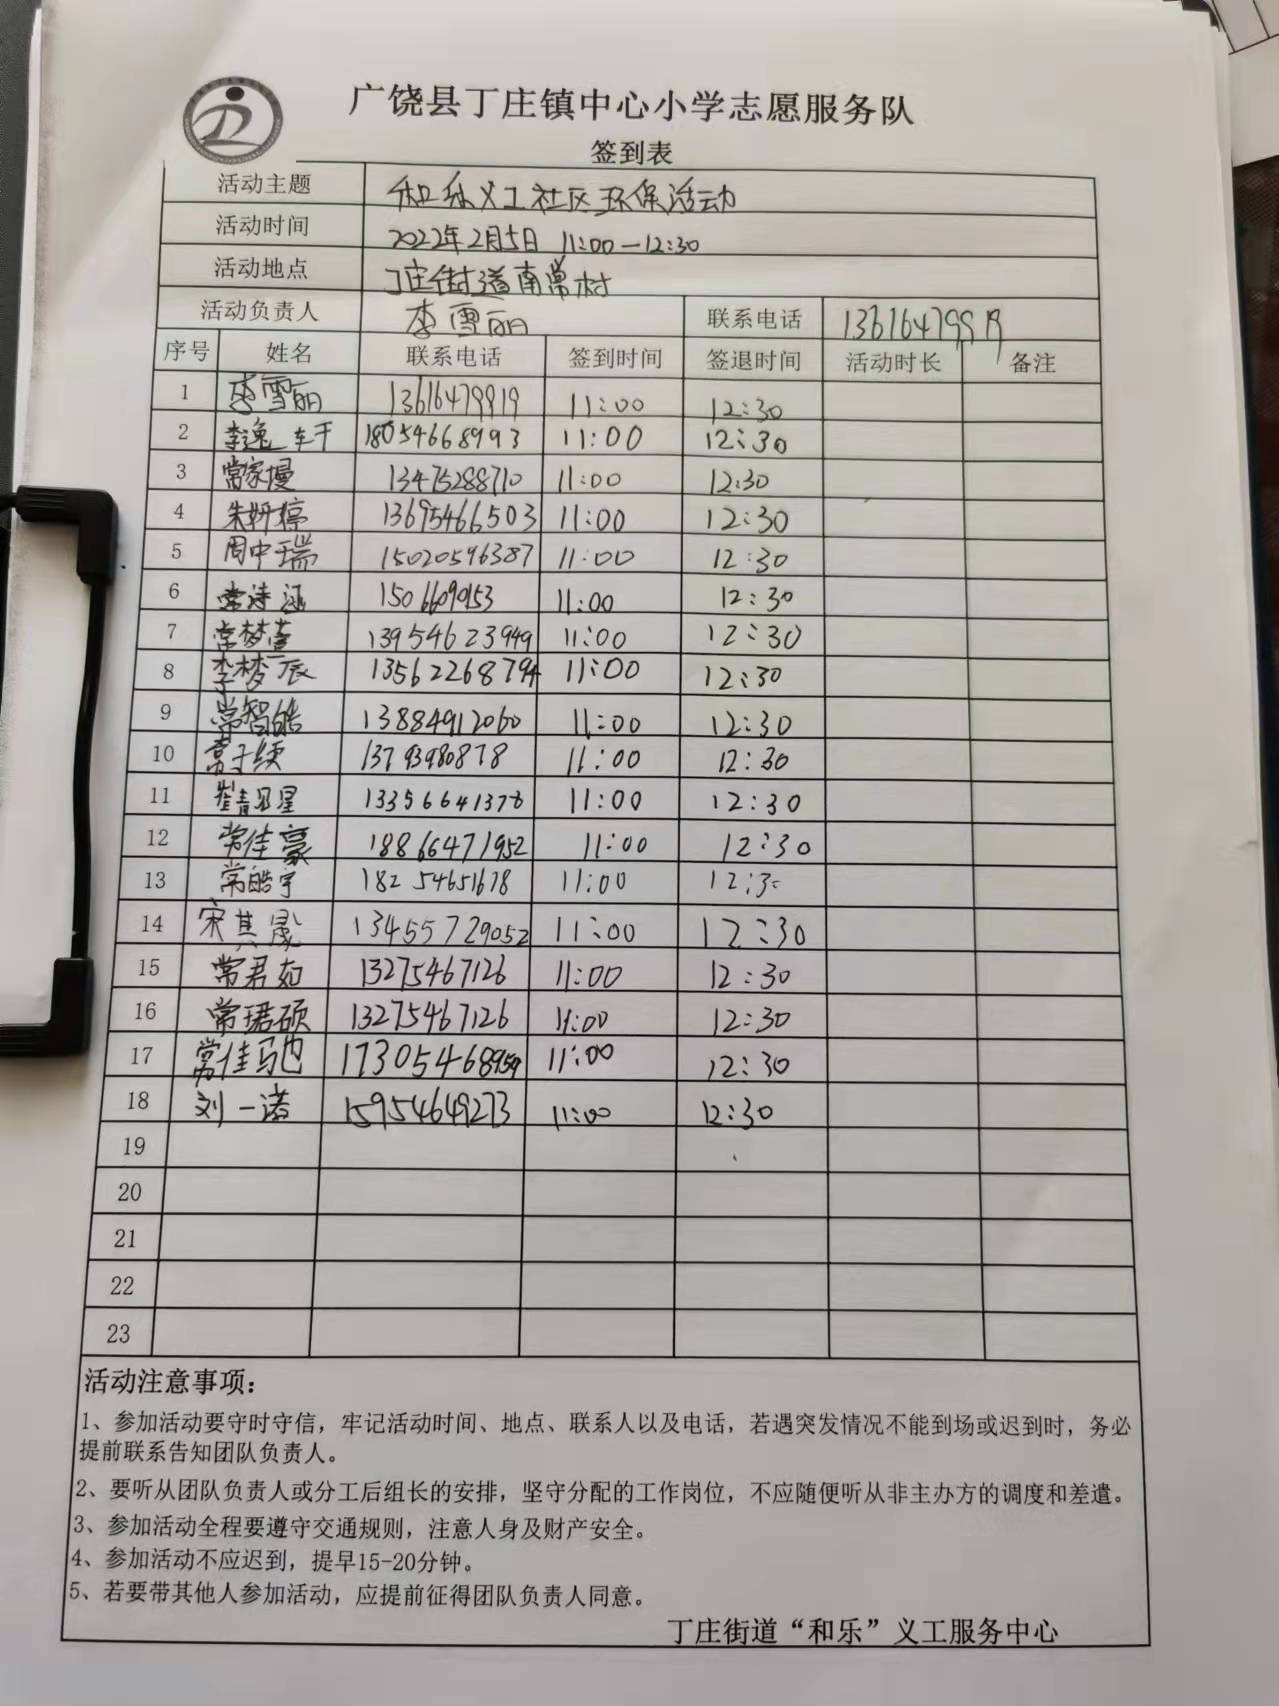 广饶县丁庄镇中心小学志愿服务队
签到表
活动主题 和乐义工社区环保活动
活动时间 2022年2月5日 11:00—12:30
活动地点 丁庄街道南常村
活动负责人 李雪丽 联系电话
序号 姓名 联系电话 签到时间 签退时间 活动时长 备注
1 李雪丽 13616479919 11:00 12:30
2 李逸轩 18054668993 11:00 12:30
3 常家熳 13475288710 11:00 12:30
4 朱妍婷 13695466503 11:00 12:30
5 周中瑞 15020596387 11:00 12:30
6 常诗涵 15066090153 11:00 12:30
7 常梦萱 13954623949 11:00 12:30
8 李梦辰 13562268794 11:00 12:30
9 常智皓 13884912060 11:00 12:30
10 常子续 13793980878 11:00 12:30
11 13356641378 11:00 12:30
12 常佳豪 18866471952 11:00 12:30
13 常皓宇 18254651678 11:00 12:30
14 宋其晟 13455729052 11:00 12:30
15 常君茹 13275467126 11:00 12:30
16 常珺硕 13275467126 11:00 12:30
17 常佳驰 17305468959 11:00 12:30
18 刘一诺 15954649273 11:00 12:30
19
20
21
22
23
活动注意事项：
1、参加活动要守时守信，牢记活动时间、地点、联系人以及电话，若遇突发情况不能到场或迟到时，务必
提前联系告知团队负责人。
2、要听从团队负责人或分工后组长的安排，坚守分配的工作岗位，不应随便听从非主办方的调度和差遣。
3、参加活动全程要遵守交通规则，注意人身及财产安全。
4、参加活动不应迟到，提早15-20分钟。
5、若要带其他人参加活动，应提前征得团队负责人同意。
丁庄街道“和乐”义工服务中心